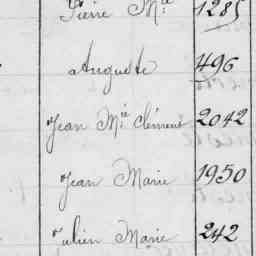 Pierre M.ie 1285
Auguste 496
Jean M.ie Clément 2042
Jean Marie 1950
Julien Marie 242